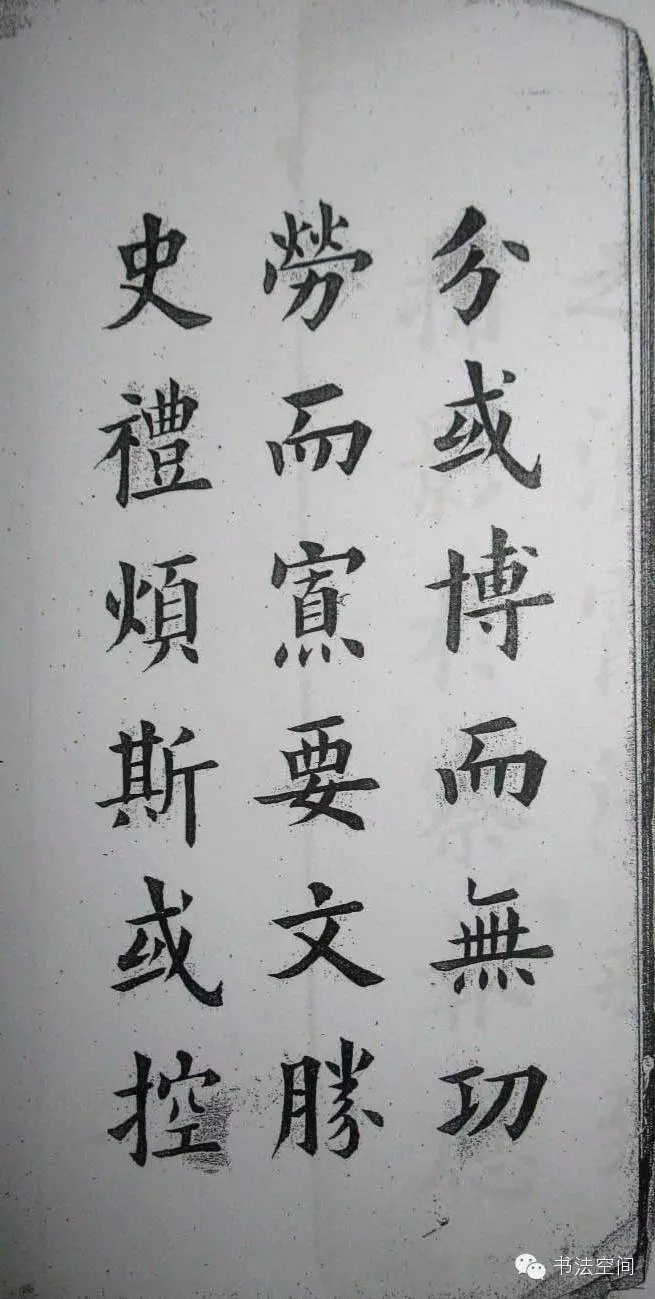 分或博而無功
勞而寡要文勝
史禮煩斯或控
书法空间